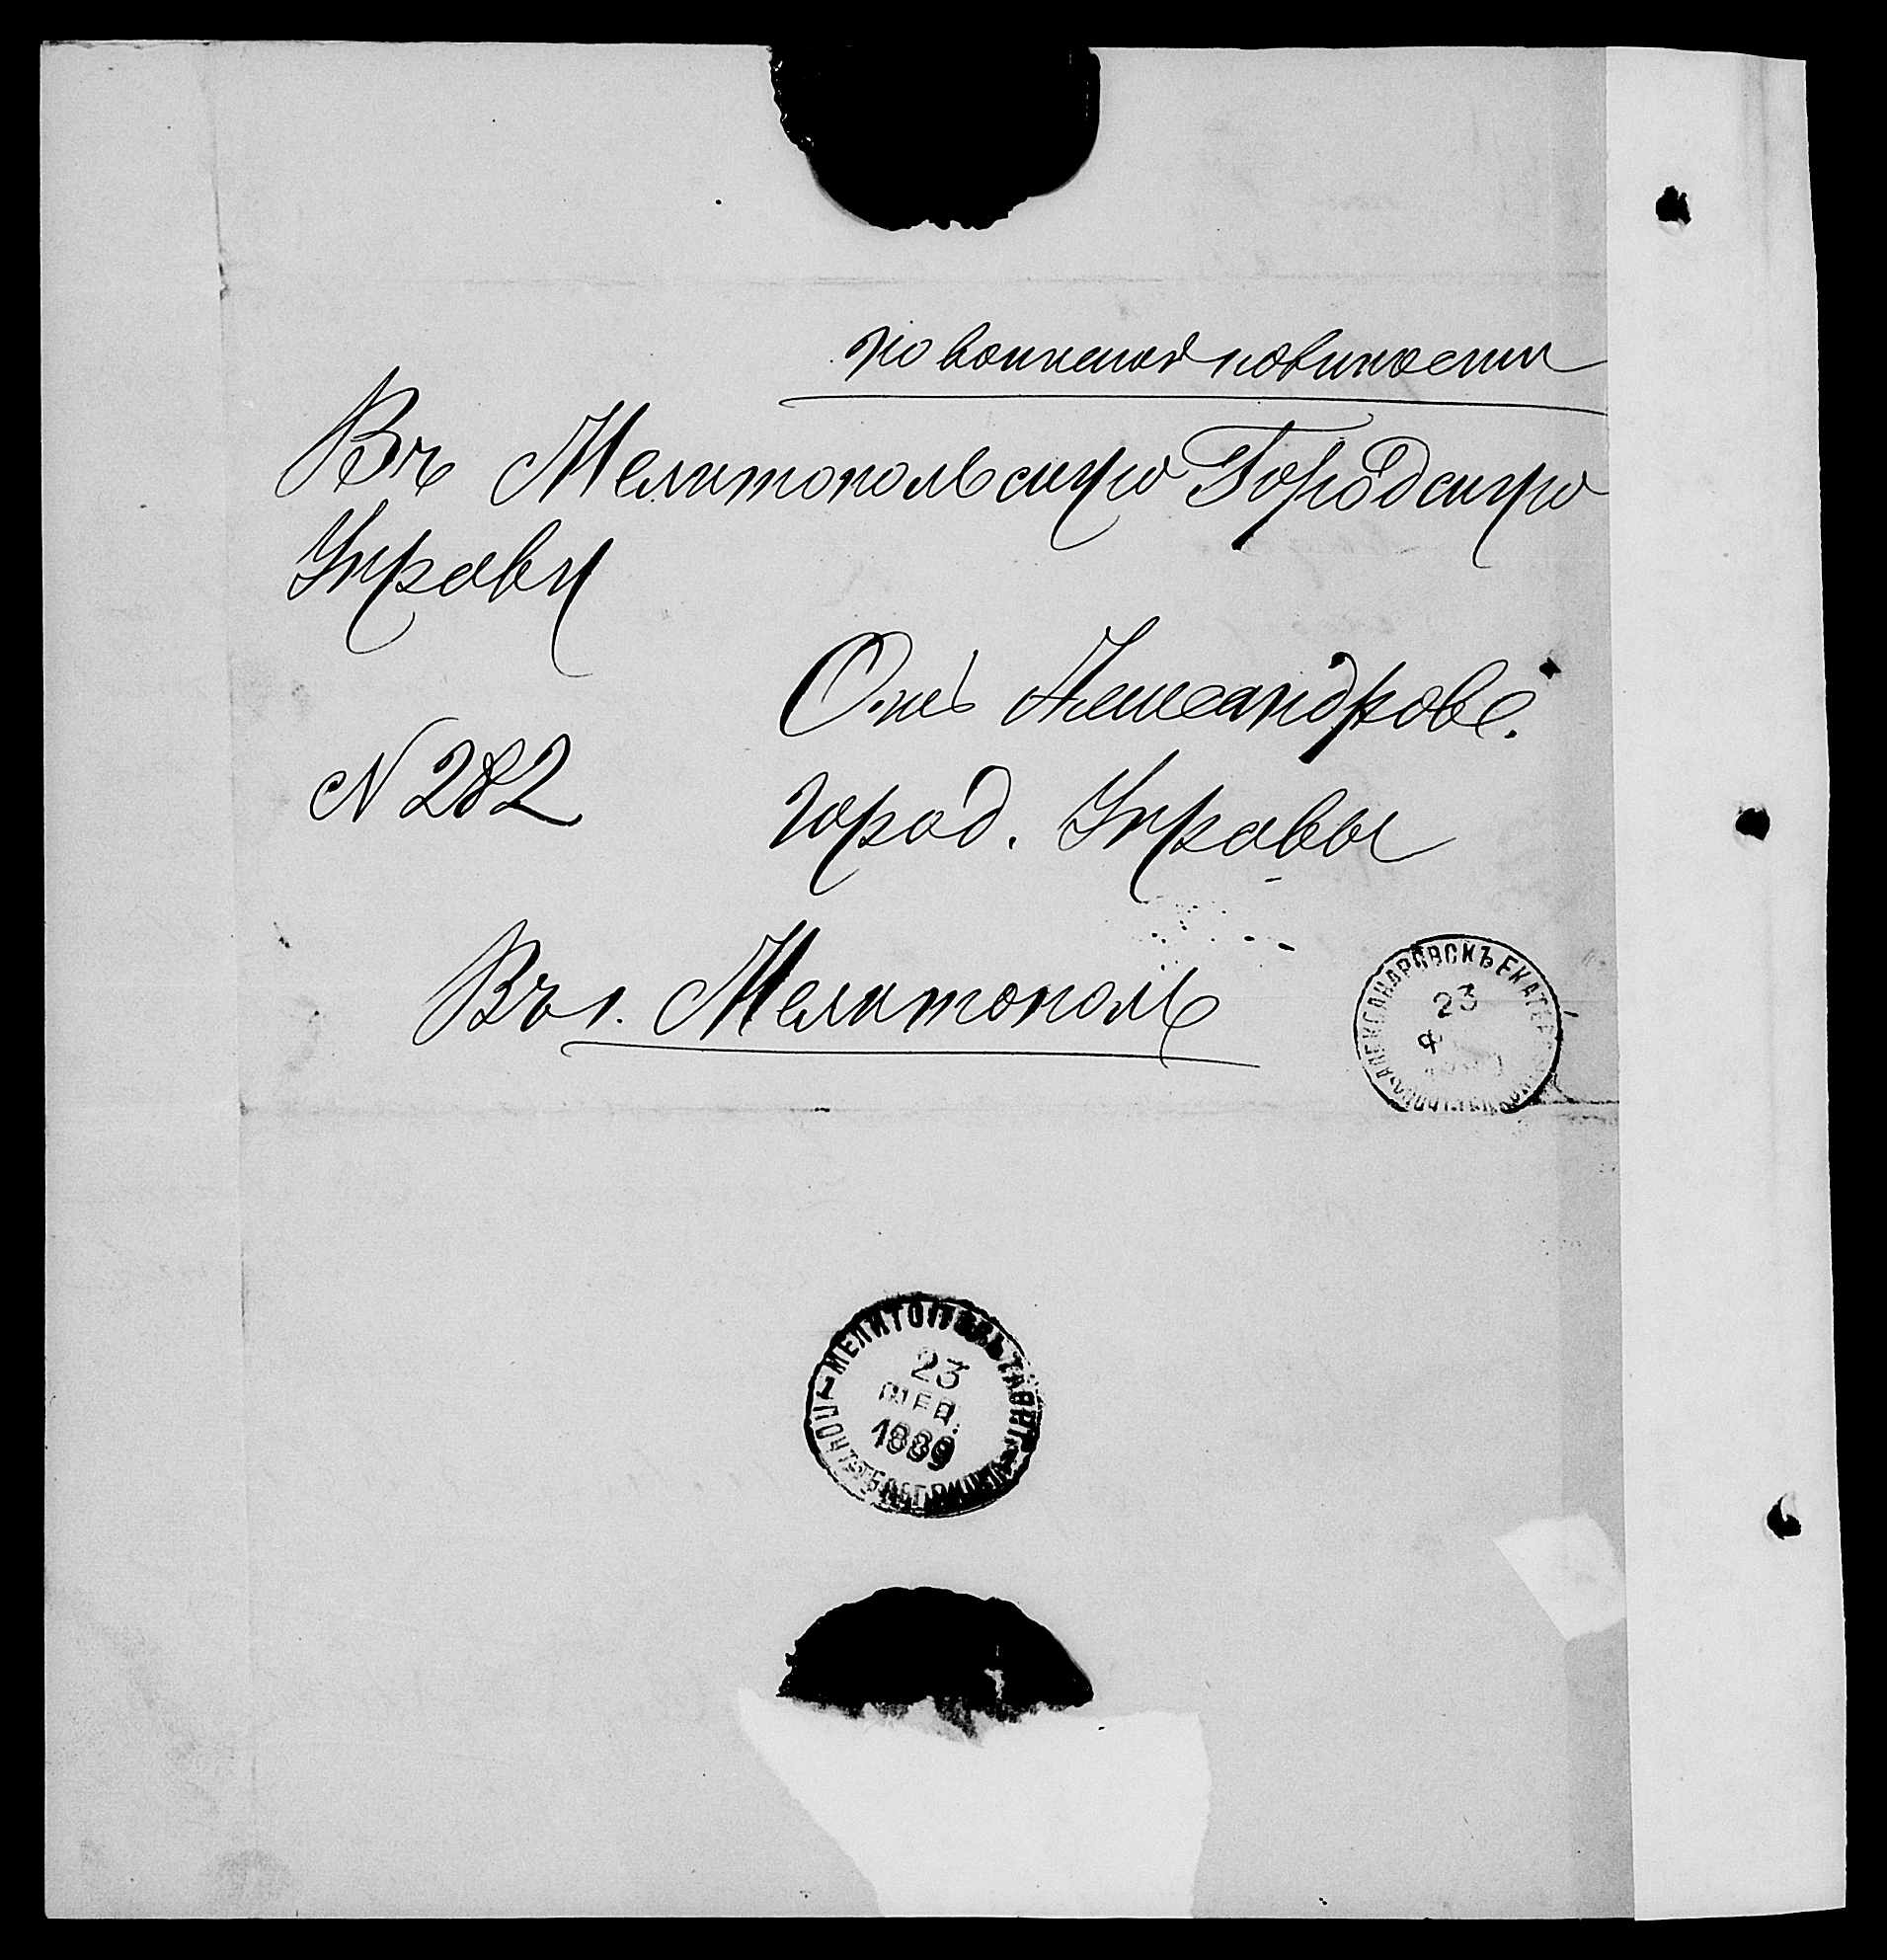 по воинской повинности
Въ Мелитопольскую Городскую
Управу
Отъ Александровс.
N 282
город. Управы
Въ г. Мелитополь
АЛЕКСАНДРОВСКЪ ЕКАТЕР
23
Ф
МЕЛИТОПОЛЬ ТАВРИЧ.
23
ФЕВ.
1889